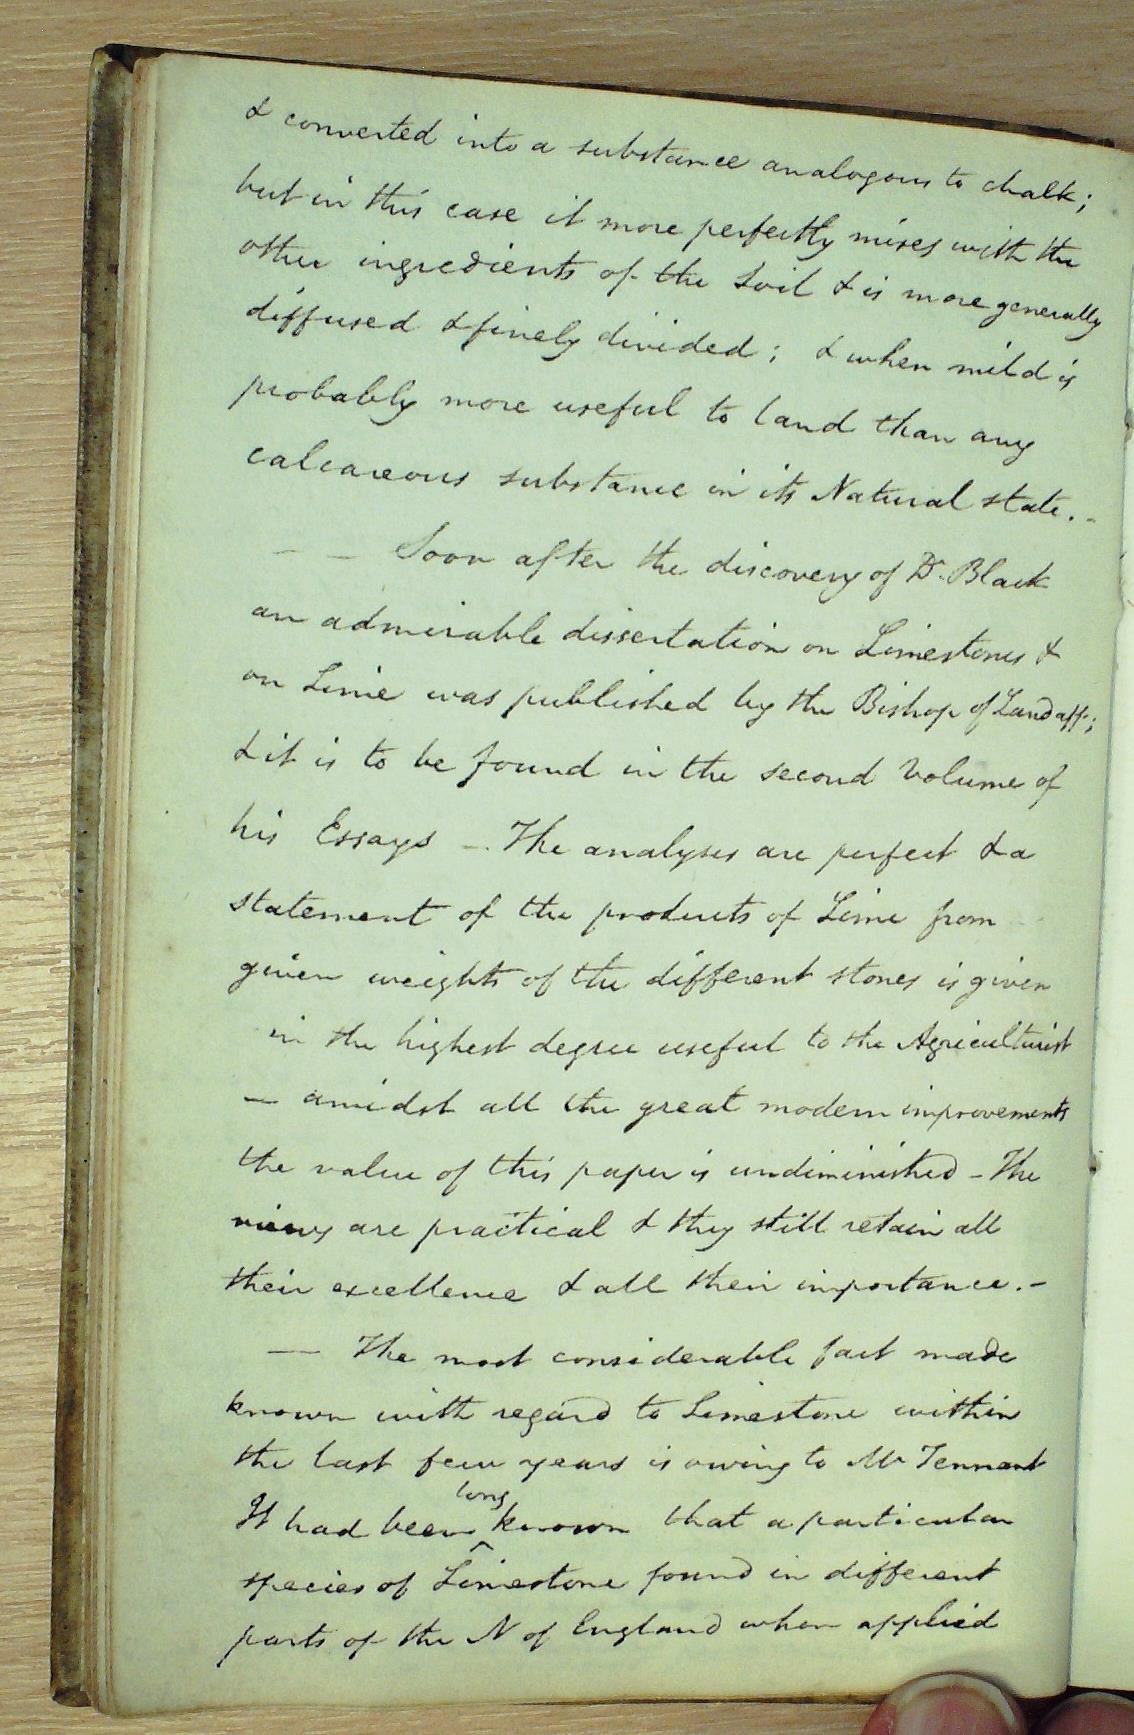 & converted into a substance analogous to chalk;
but in this case it more perfectly mixes with the
other ingredients of the Soil & is more generally
diffused & finely divided; & when mild is
probably more useful to land than any
calcareous substance in its Natural state. -
— — Soon after the discovery of Dr. Black
an admirable dissertation on Limestones &
on Lime was published by the Bishop of Landaff;
& it is to be found in the second Volume of
his Essays -. The analyses are perfect & a
statement of the products of Lime from
given weights of the different stones is given
in the highest degree useful to the Agriculturist
— amidst all the great modern improvements
the value of this paper is undiminished - The
views are practical & they still retain all
their excellence & all their importance. -
— The most considerable fact made
known with regard to Limestone within
the last few years is owing to Mr Tennant
It had been ^long known that a particular
species of Limestone found in different
parts of the N of England when applied